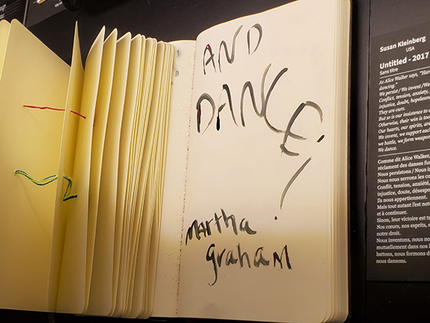 AND
DANCE!
Martha
Graham
Susan Kleinberg
USA
Untitled - 2017
Sans titre
As Alice Walker says,
dancing."
We persist / We invent/We
Conflict, tension, anxiety,
injustice, doubt,
They are ours.
But so is our insistence to
Otherwise, their win is too
Our hearts, our spirits,
We invent, we support
we battle, we form
We dance.
Comme dit Alice Walker,
réclament des danses
Nous persistons / Nous
Nous nous serrons les
Conflit, tension, anxiété,
injustice, doute,
Ils nous appartiennent.
Mais tout autant l'est
et à continuer.
Sinon, leur victoire est
Nos cœurs, nos esprits,
notre droit.
Nous inventons, nous
mutuellement dans nos
battons, nous formons
nous dansons.